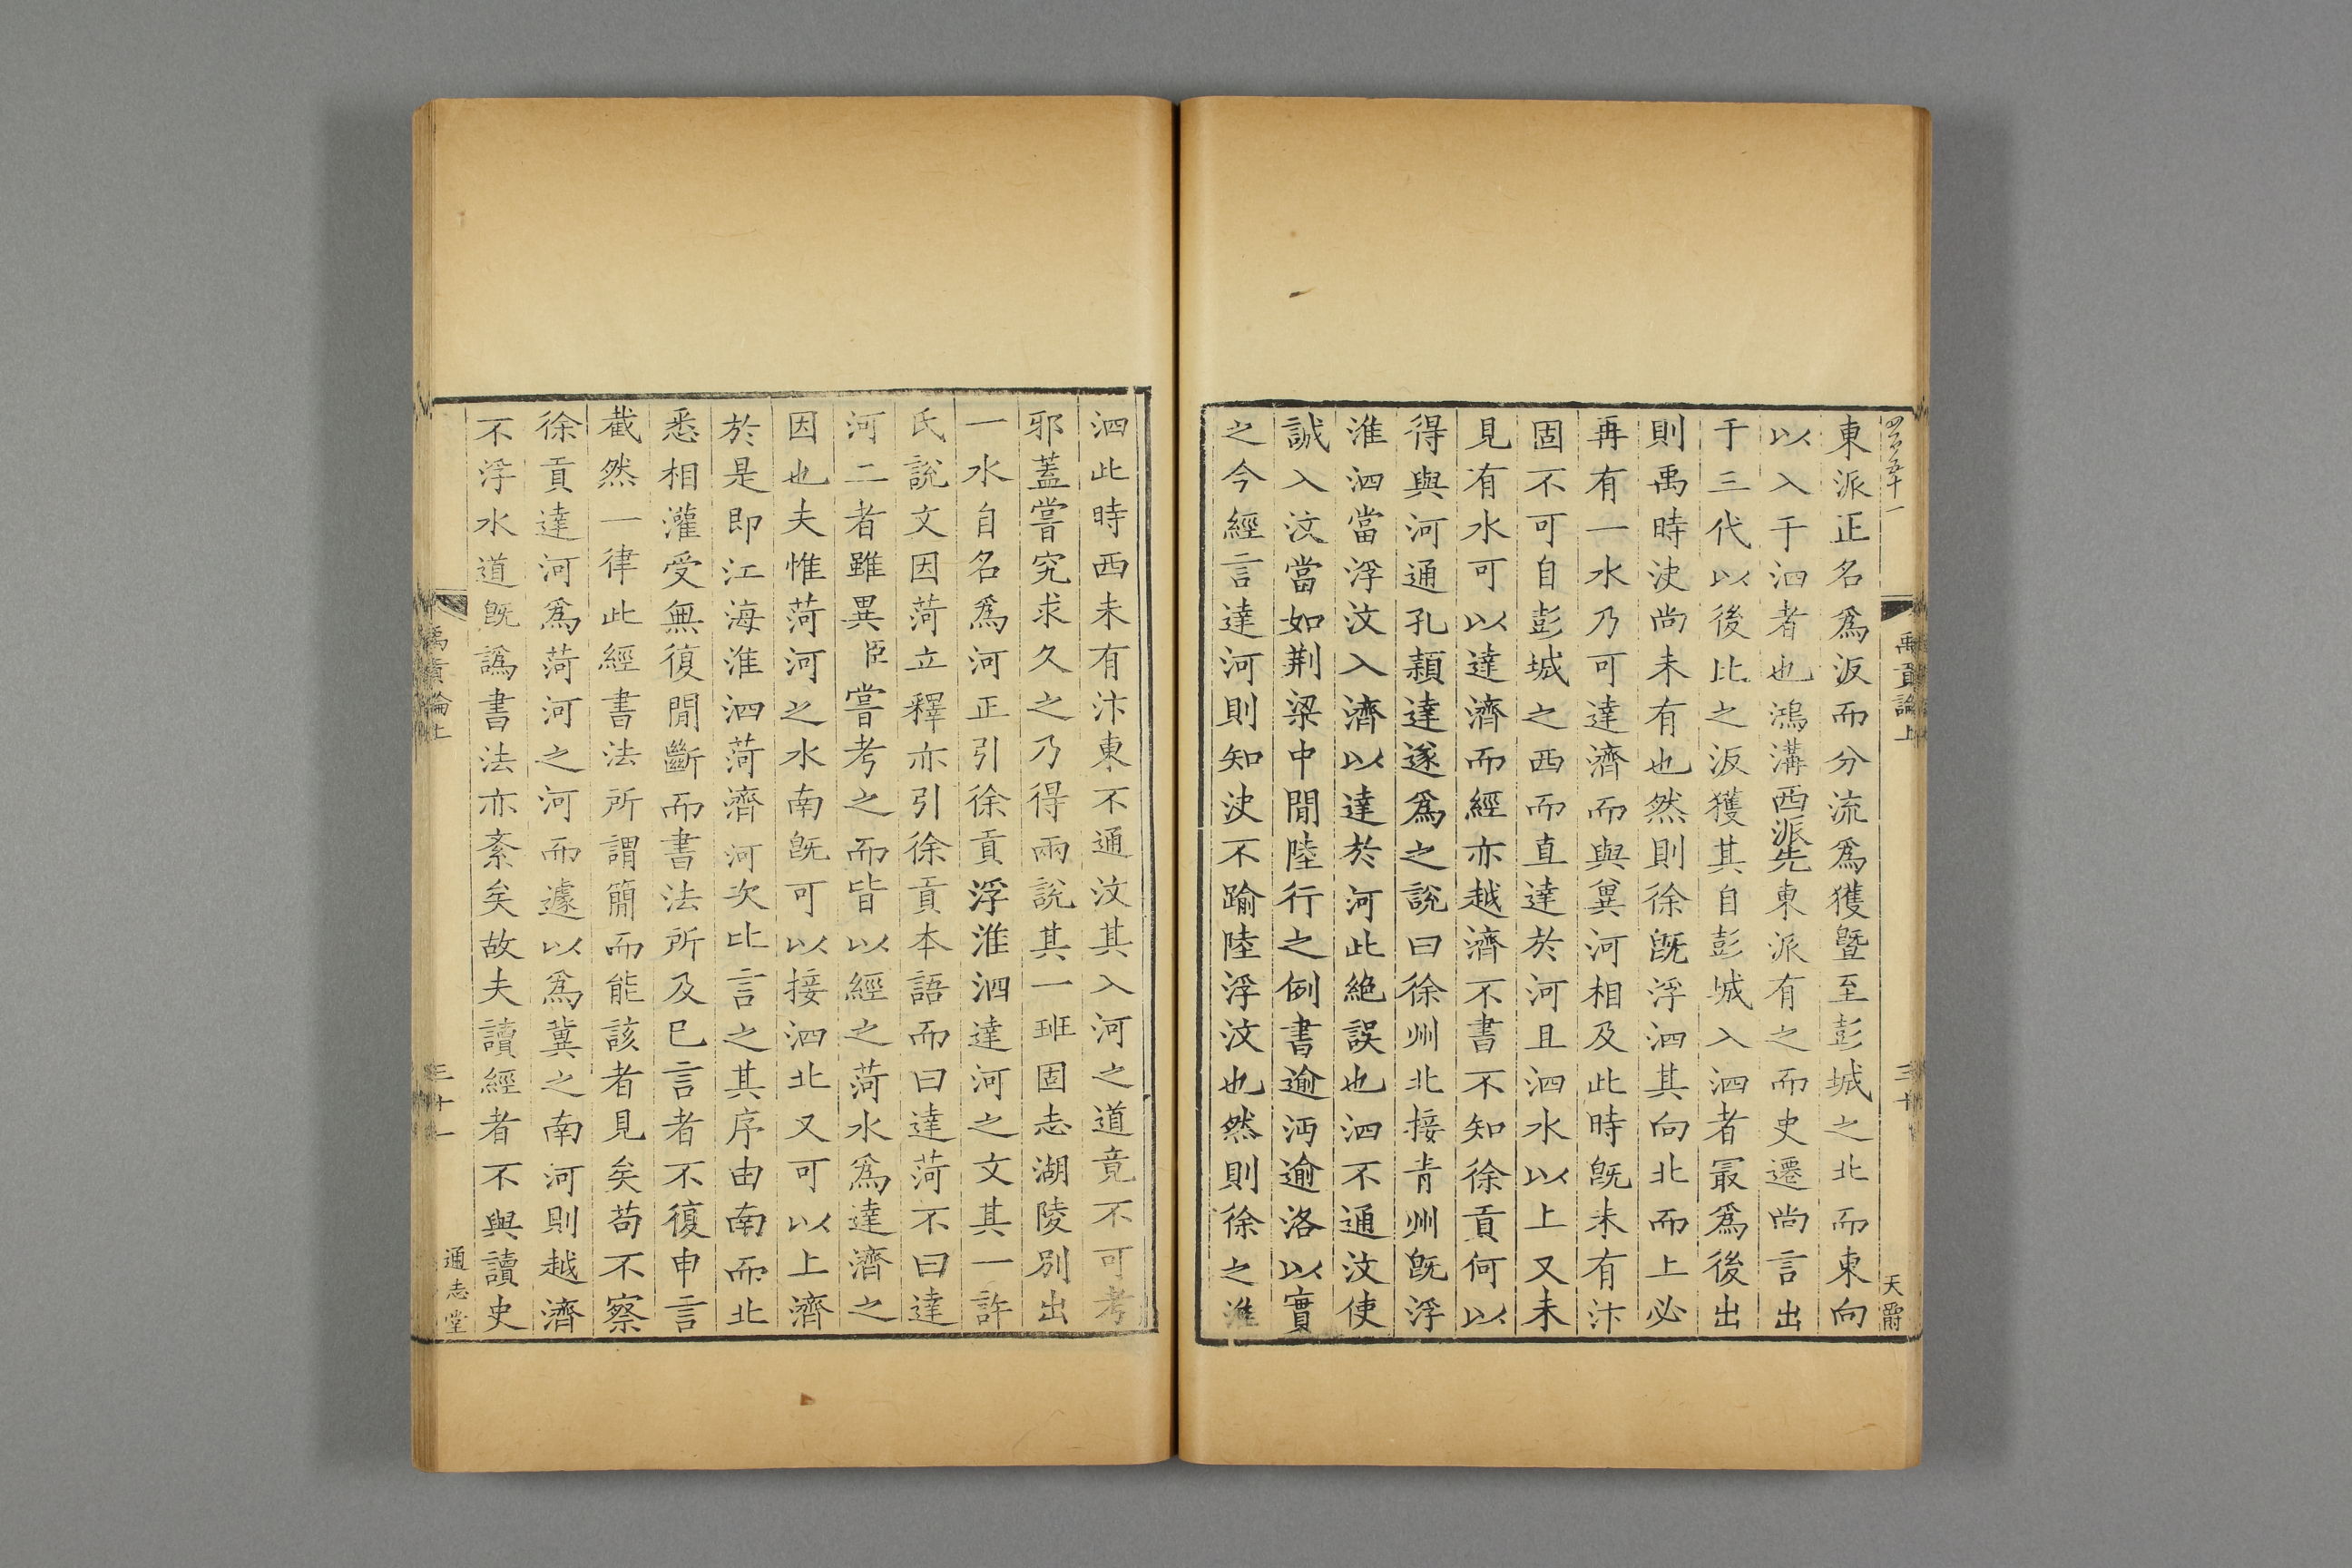 禹貢論上
三十
天爵
東派正名爲汳而分流爲獲曁至彭城之北而東向
以入于泗者也鴻溝西派先東派有之而史遷尚言出
于三代以後比之汳獲其自彭城入泗者最爲後出
則禹時決尚未有也然則徐旣浮泗其向北而上必
再有一水乃可達濟而與冀河相及此時旣未有汴
固不可自彭城之西而直達於河且泗水以上又未
見有水可以達濟而經亦越濟不書不知徐貢何以
得與河通孔穎達遂爲之說曰徐州北接靑州旣浮
淮泗當浮汶入濟以達於河此絶誤也泗不通汶使
誠入汶當如荆梁中閒陸行之例書逾沔逾洛以實
之今經言達河則知決不踰陸浮汶也然則徐之淮
泗此時西未有汴東不通汶其入河之道竟不可考
邪蓋嘗究求久之乃得兩說其一班固志湖陵別出
一水自名爲河正引徐貢浮淮泗達河之文其一許
氏說文因菏立釋亦引徐貢本語而曰達菏不曰達
河二者雖異臣嘗考之而皆以經之菏水爲達濟之
因也夫惟菏河之水南旣可以接泗北又可以上濟
於是卽江海淮泗菏濟河次比言之其序由南而北
悉相灌受無復閒斷而書法所及已言者不復申言
截然一律此經書法所謂簡而能該者見矣苟不察
徐貢達河爲菏河之河而遽以爲冀之南河則越濟
不浮水道旣譌書法亦紊矣故夫讀經者不與讀史
禹貢論上
三十一
通志堂